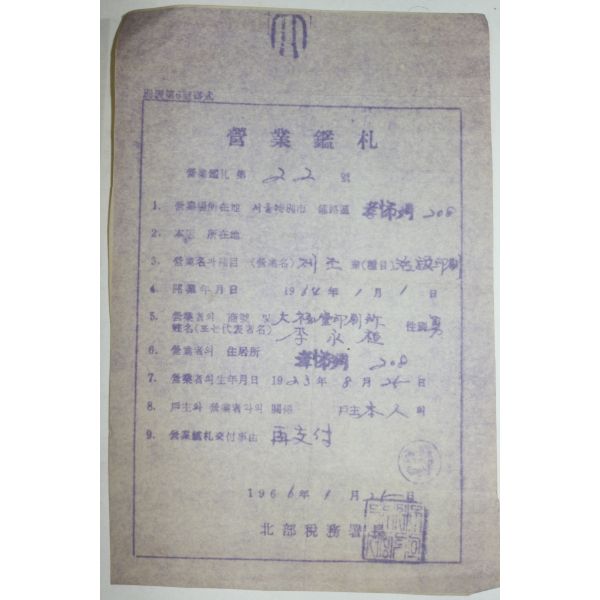 營業鑑札
營業鑑札 第 22 號
1. 營業場所在地 서울特別市 鍾路區 孝悌洞 208
2. 本店 所在地
3. 營業名과種目 (營業名) 제조 業(種目) 印刷
4. 開業年月日 1964年 1月 1日
5. 營業者의 商號 및 大 堂印刷所
姓名(또는代表者名) 李永 性別 男
6. 營業者의 住居所 孝悌洞 208
7. 營業者의生年月日 1923年 8月 25日
8. 戶主와 營業者와의 關係 戶主本人의
9. 營業鑑札交付事由 再交付
1966年 1月 25日
北部稅務署長